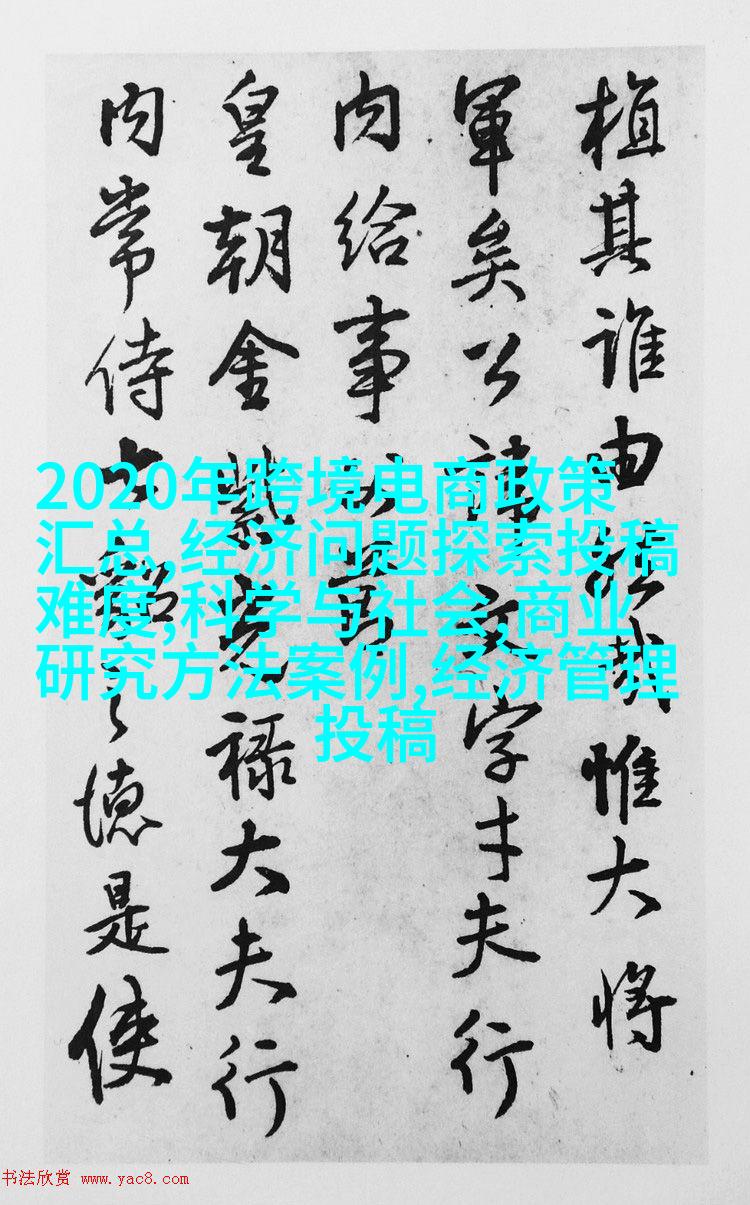 植其誰由哉惟大將
軍矣公諱文字才夫行
內給事
皇朝金紫光祿大夫行
內常侍之德是使
2020年跨境电商政策
汇总,经济问题探索投稿
难度,科学与社会,商业
研究方法案例,经济管理
投稿
书法欣赏 www.yac8.com